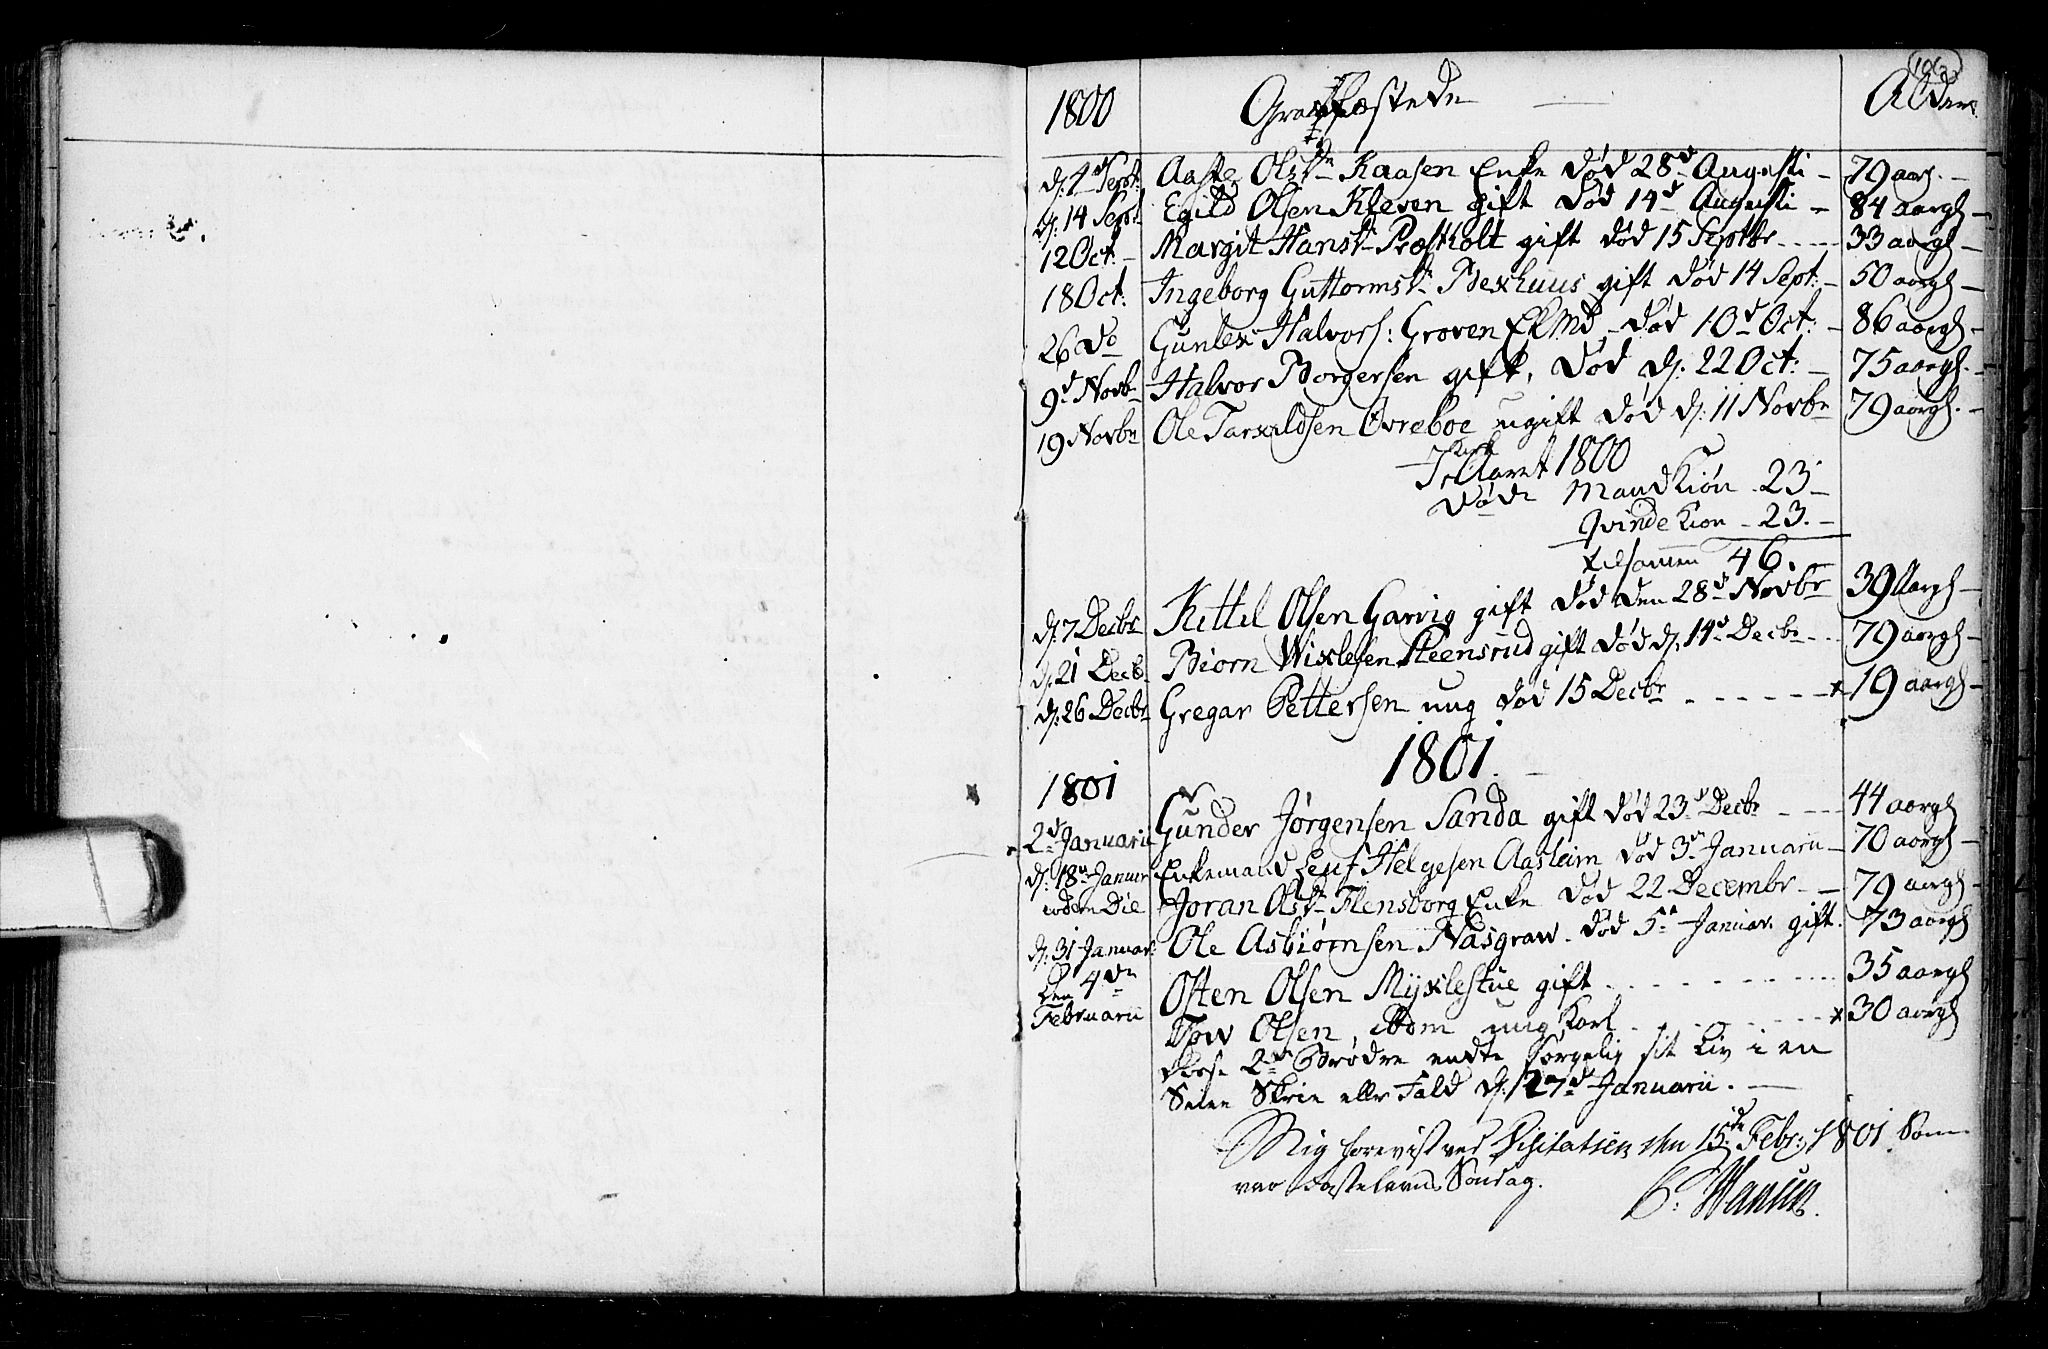 106
1800 Gravfæstede Alder
d: 7d Sept: Aaste Olsdn Kaasen Enke død 28d Augusti - 79 aar. -
d: 14 Sept Egild Olsen Kleven gift død 14d Augusti - 84 aargl -
12 Oct: - Margit Hansd Præstholt gift død 15 Septbr ---- 33 aargl -
18 Oct: Ingeborg Guttormsd: gift død 14 Sept: - 50 aargl -
26 do Halvors: Groven Ekmd - død 10d Oct: - 86 aargl -
9d Novbr Halvor Borgersen gift, død d: 22 Oct: - 75 aargl. -
19 Novbr Ole Tarkildsen Øvreboe ugift død d: 11 Novbr 79 aargl. -
I Kirke Aaret 1800
døde Mandkiøn - 23 -
Qvindekiøn - 23. -
tilsamen 46.
d: 7 Decbr Kittil Olsen Garvig gift død den 28d Novbr 39 Aargl -
d: 21 Decb. Biørn Steensrud gift død d: 14d Decbr --- 79 aargl -
d: 26 Decbr Gregar Pettersen ung død 15 Decbr ------ x 19 aargl -
1801. -
1801
2d Januarii Gunder Jørgensen Sanda gift død 23d Decbr --- 44 aargl
d: 18de Januar Enkemand Leuf Helgesen Aasheim død 3de Januarii - 70 aargl -
eodem Die Joran Olsdn Flensborg Enke død 22 Decembr - - 79 aargl -
d: 31 Januar: Ole Asbiørnsen død 5te Januar. gift. 73 aargl
den 4de Osten Olsen Myklestue gift -------- 35 aargl
Februarii Tov Olsen, ung karl --------- x 30 aargl
disse 2de Brødre endte sørgelig sit Liv i en
Skrie eller Fald d: 27d Januarii. -
Mig forevist ved Visitatien den 15de Febr: 1801. som
var Fastelavns Søndag.